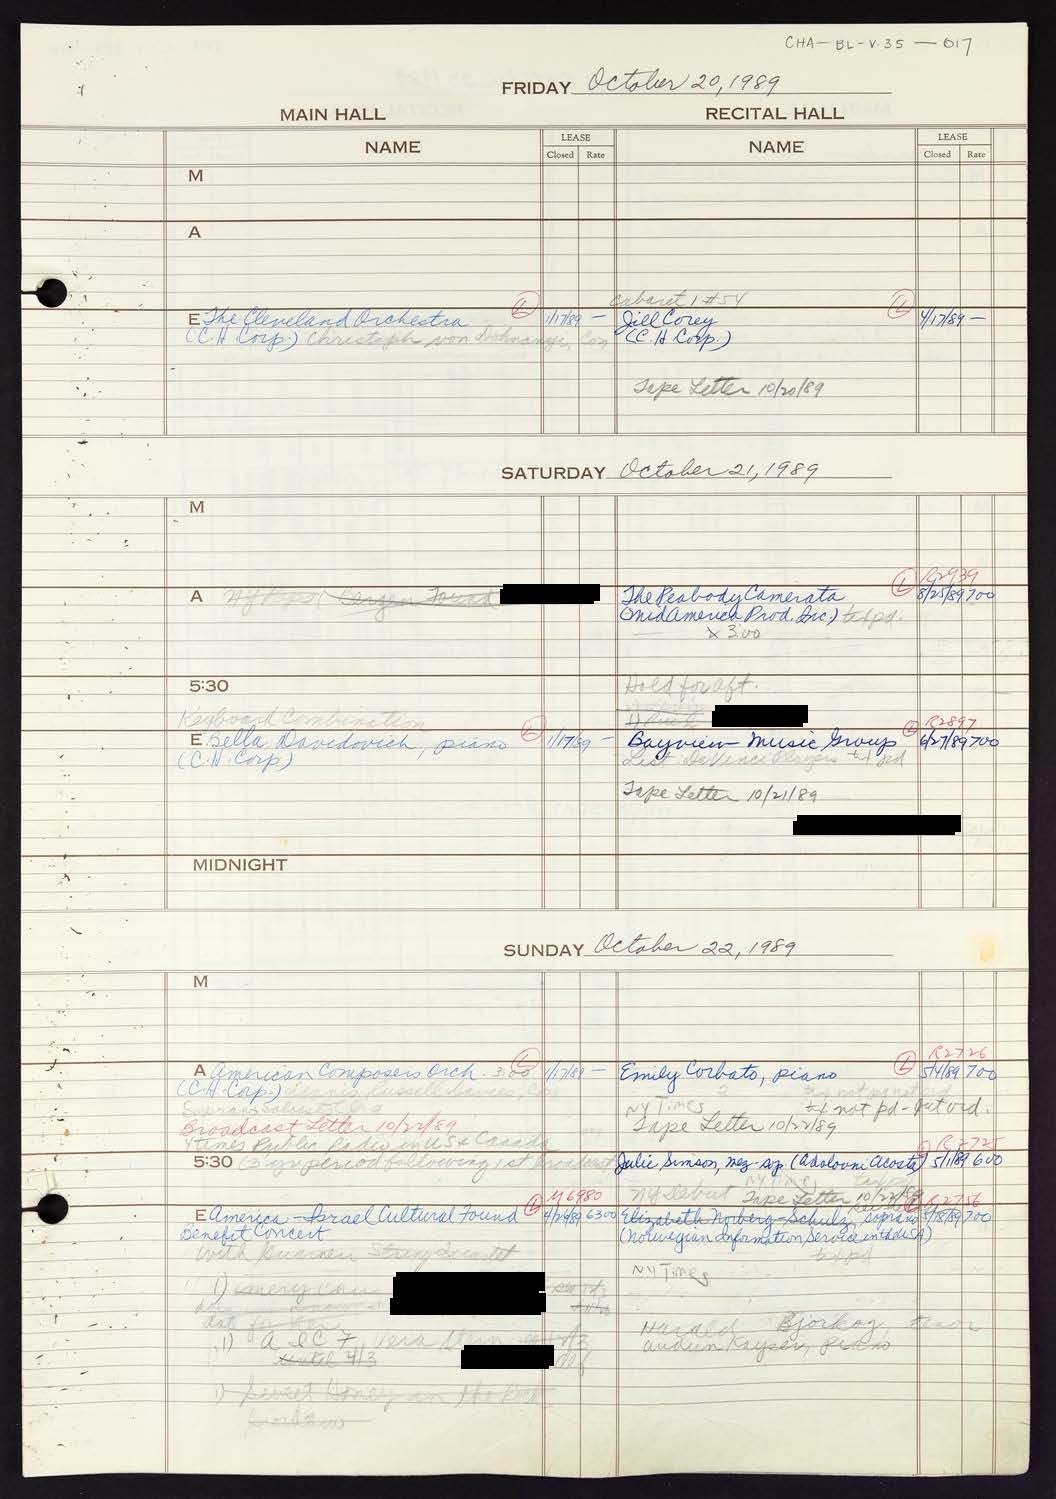 CHA-BL-V.35-017
FRIDAY October 20, 1989
MAIN HALL RECITAL HALL
NAME LEASE Closed Rate NAME LEASE Closed Rate
M
A
Cabaret 1 #54
E The Cleveland Orchestra L 1/17/89 — Jill Corey L 4/17/89 —
(C.H. Corp.) Christoph von Dohnanyi, Con (C.H. Corp.)
Tape Letter 10/20/89
SATURDAY October 21, 1989
M
R2939
A NY Pops The Peabody Camerata L 8/25/89 700
(MidAmerica Prod. Inc.) txt pd.
x 3:00
5:30 Hold for aft.
Keyboard Combination R2897
E Bella Davidovich, piano L 1/17/89 — Bayview Music Group L 6/27/89 700
(C.H. Corp)
Tape Letter 10/21/89
MIDNIGHT
SUNDAY October 22, 1989
M
R2726
A American Composers Orch. 3:00 L 1/17/89 — Emily Corbato, piano L 5/4/89 700
(C.H. Corp.) Dennis Russell Davies, Con
NY Times txt not pd -
Broadcast Letter 10/22/89 Tape Letter 10/22/89
4 times Public Radio in US & Canada R2725
5:30 (3 yr period following 1st broadcast Julie Simson, mez-sop. (Adolovni Acosta) 5/1/89 600
NY Times
NY Debut Tape Letter 10/22/89
M6980 R2756
E America-Israel Cultural Found L 4/26/89 6300 Elizabeth Norberg-Schulz, soprano 5/18/89 700
Benefit Concert (Norwegian Information Service in the USA)
txt pd
NY Times
1)
1) AICF, Vera Stern
until 4/3
Harald Bjorkoy, tenor
Audun Kayser, piano
1) Sweet Honey in the Rock